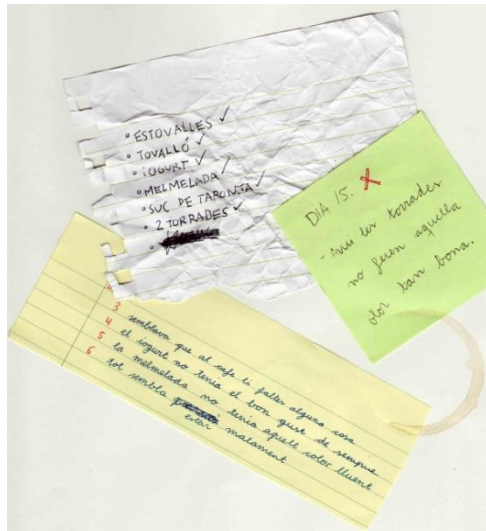 • ESTOVALLES ✓
• TOVALLÓ ✓
• IOGURT ✓
• MELMELADA ✓
• SUC DE TARONJA ✓
• 2 TORRADES ✓
•
DIA 15. X
- Avui les torrades
no feien aquella
olor tan bona.
3 semblava que al cafe li faltes alguna cosa
4 el iogurt no tenia el bon gust de sempre
5 la melmelada no tenia aquell color lluent
6 tot sembla estar malament